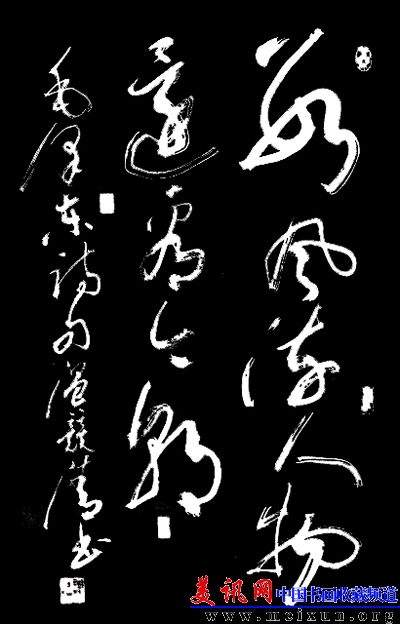 数风流人物
还看今朝
毛泽东诗句 温竞华书
美讯网 中国书画收藏频道
www.meixun.org